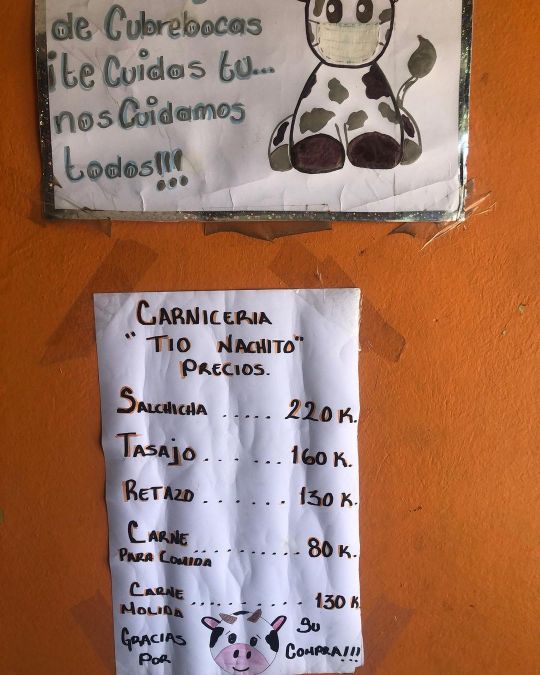 de Cubrebocas
¡te Cuidas tu...
nos Cuidamos
todos!!!
CARNICERIA
"TIO NACHITO"
PRECIOS.
SALCHICHA ..... 220 K.
TASAJO ...... 160 K.
RETAZO ...... 130 K.
CARNE
PARA COMIDA .......... 80 K.
CARNE
MOLIDA .......... 130 K
GRACIAS
POR
SU
COMPRA!!!